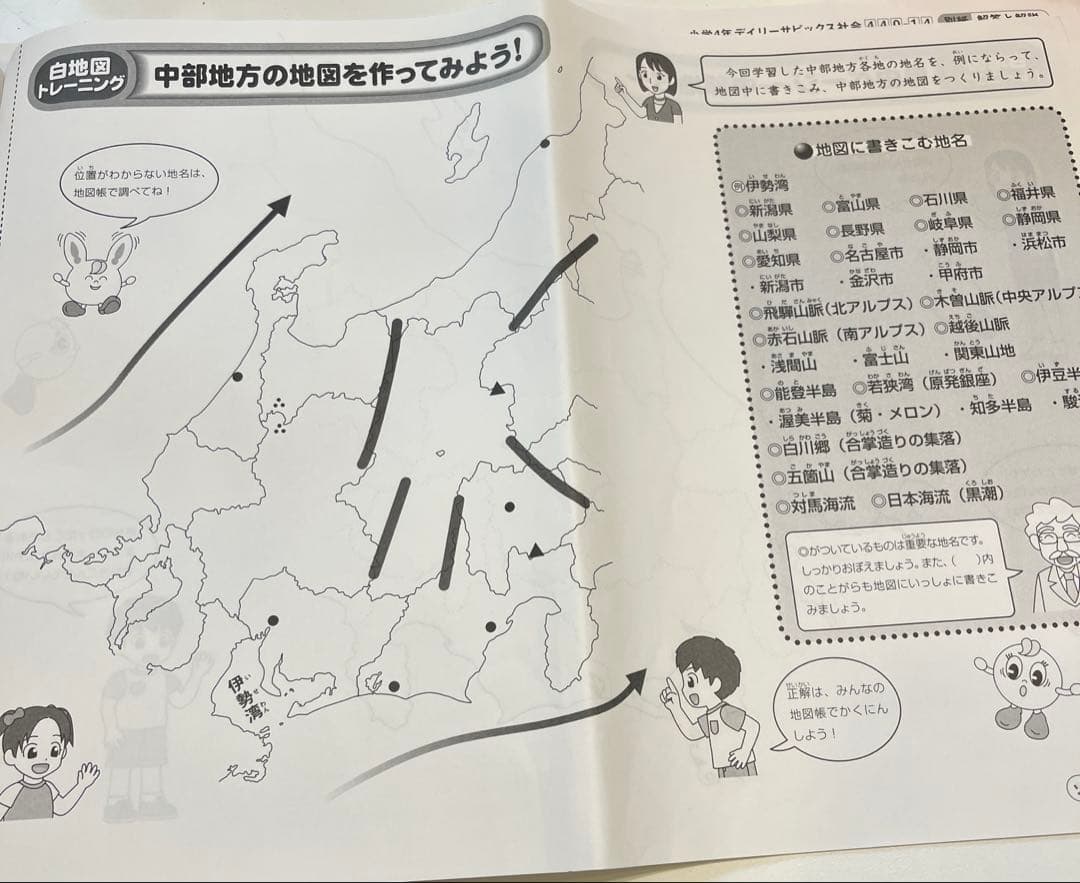 白地図
トレーニング
中部地方の地図を作ってみよう!
小学4年 デイリーサピックス社会 440-14 別紙 解答と解説
今回学習した中部地方各地の地名を、例にならって、
地図中に書きこみ、中部地方の地図をつくりましょう。
位置がわからない地名は、
地図帳で調べてね!
●地図に書きこむ地名
例伊勢湾
◎新潟県 ◎富山県 ◎石川県 ◎福井県
◎山梨県 ◎長野県 ◎岐阜県 ◎静岡県
◎愛知県 ◎名古屋市 ・静岡市 ・浜松市
・新潟市 ・金沢市 ・甲府市
◎飛驒山脈(北アルプス) ◎木曽山脈(中央アルプ
◎赤石山脈(南アルプス) ◎越後山脈
・浅間山 ・富士山 ・関東山地
◎能登半島 ◎若狭湾(原発銀座) ◎伊豆半
・渥美半島(菊・メロン) ・知多半島 ・駿
◎白川郷(合掌造りの集落)
◎五箇山(合掌造りの集落)
◎対馬海流 ◎日本海流(黒潮)
◎がついているものは重要な地名です。
しっかりおぼえましょう。また、( )内
のことがらも地図にいっしょに書きこ
みましょう。
伊勢湾
正解は、みんなの
地図帳でかくにん
しよう!